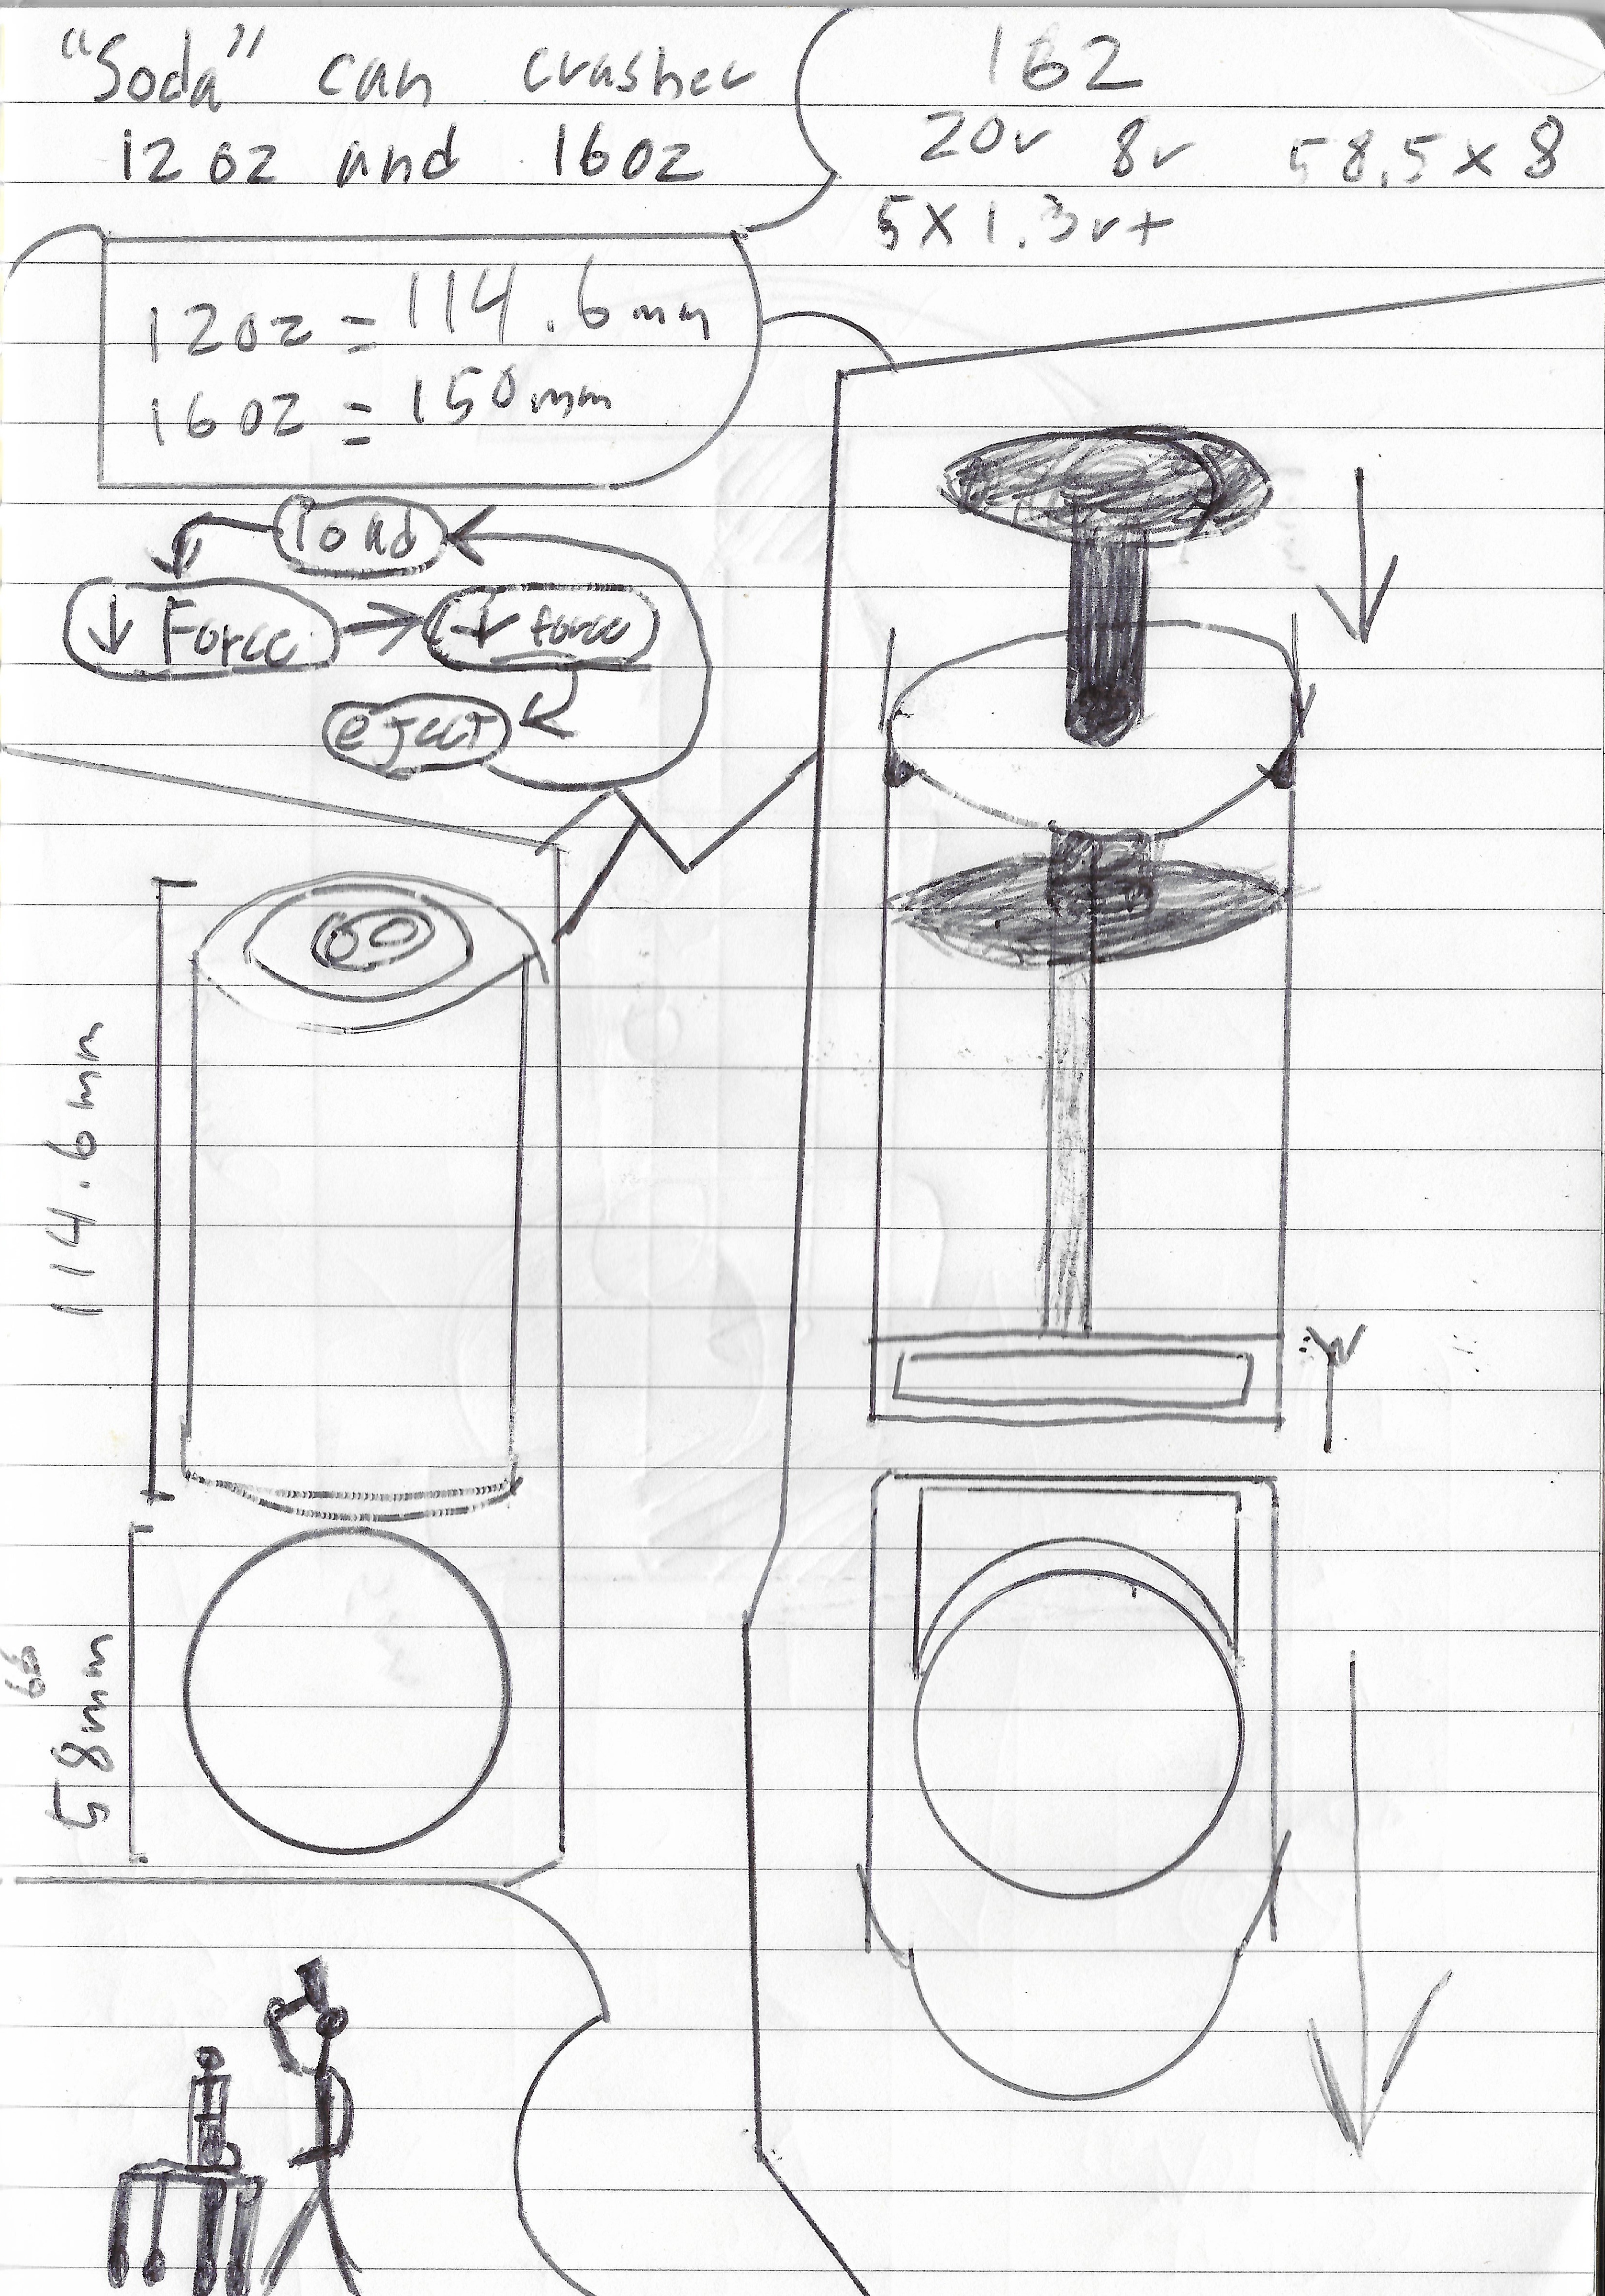 "Soda" can crusher
12oz and 16oz
162
20r 8r 58.5x8
5x1.3r+
12oz = 114.6mm
16oz = 150mm
load
↓ Force → ↓ force
eject
114.6mm
66
58mm